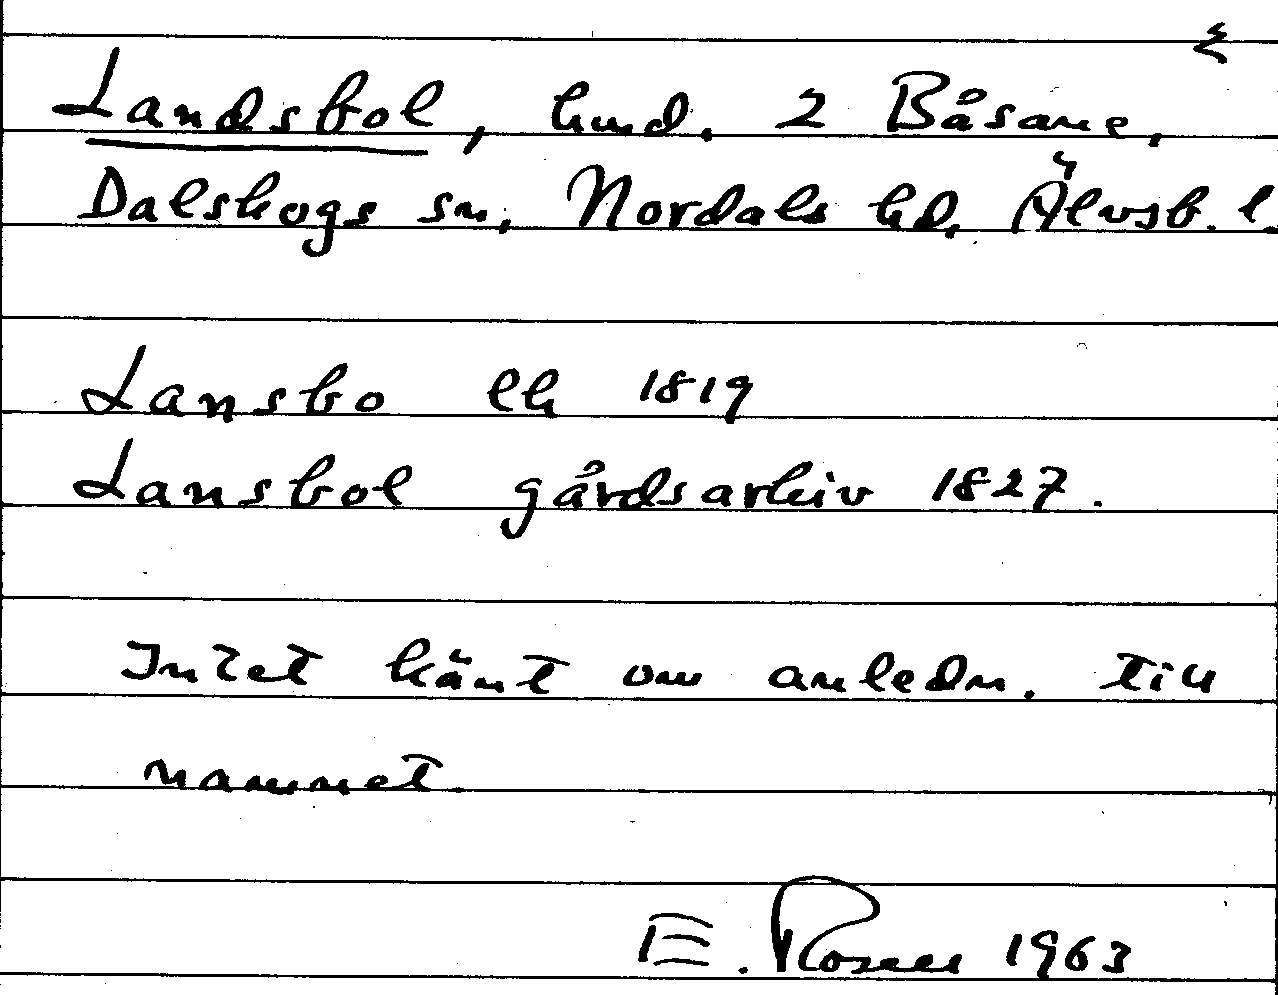 Landsbol, hmd. 2 Båsane,
Dalskogs sn, Nordals hd, Älvsb. l.
Lansbo lh 1819
Lansbol gårdsarkiv 1827.
Intet känt om anledn. till
namnet.
E. Rosell 1963